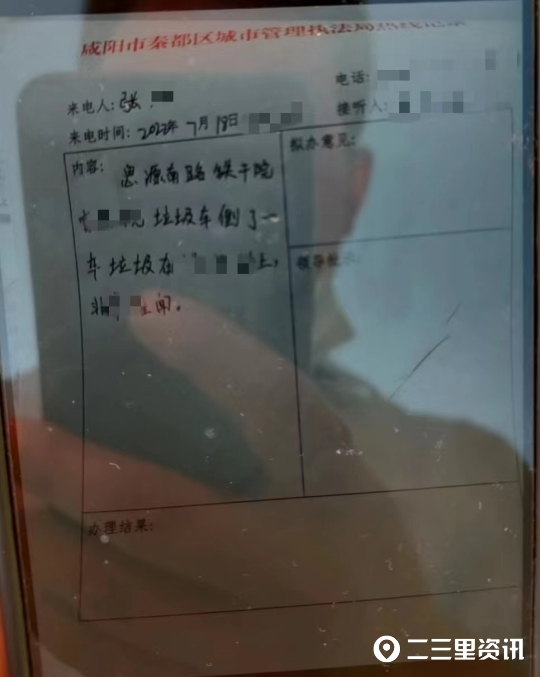 咸阳市秦都区城市管理执法局热线记录
电话:
来电人: 张
接听人:
来电时间: 2022年7月18日
内容: 思源南路铁干院
垃圾车倒了一
车垃圾在 上,
闻。
拟办意见:
领导批示:
办理结果:
二三里资讯